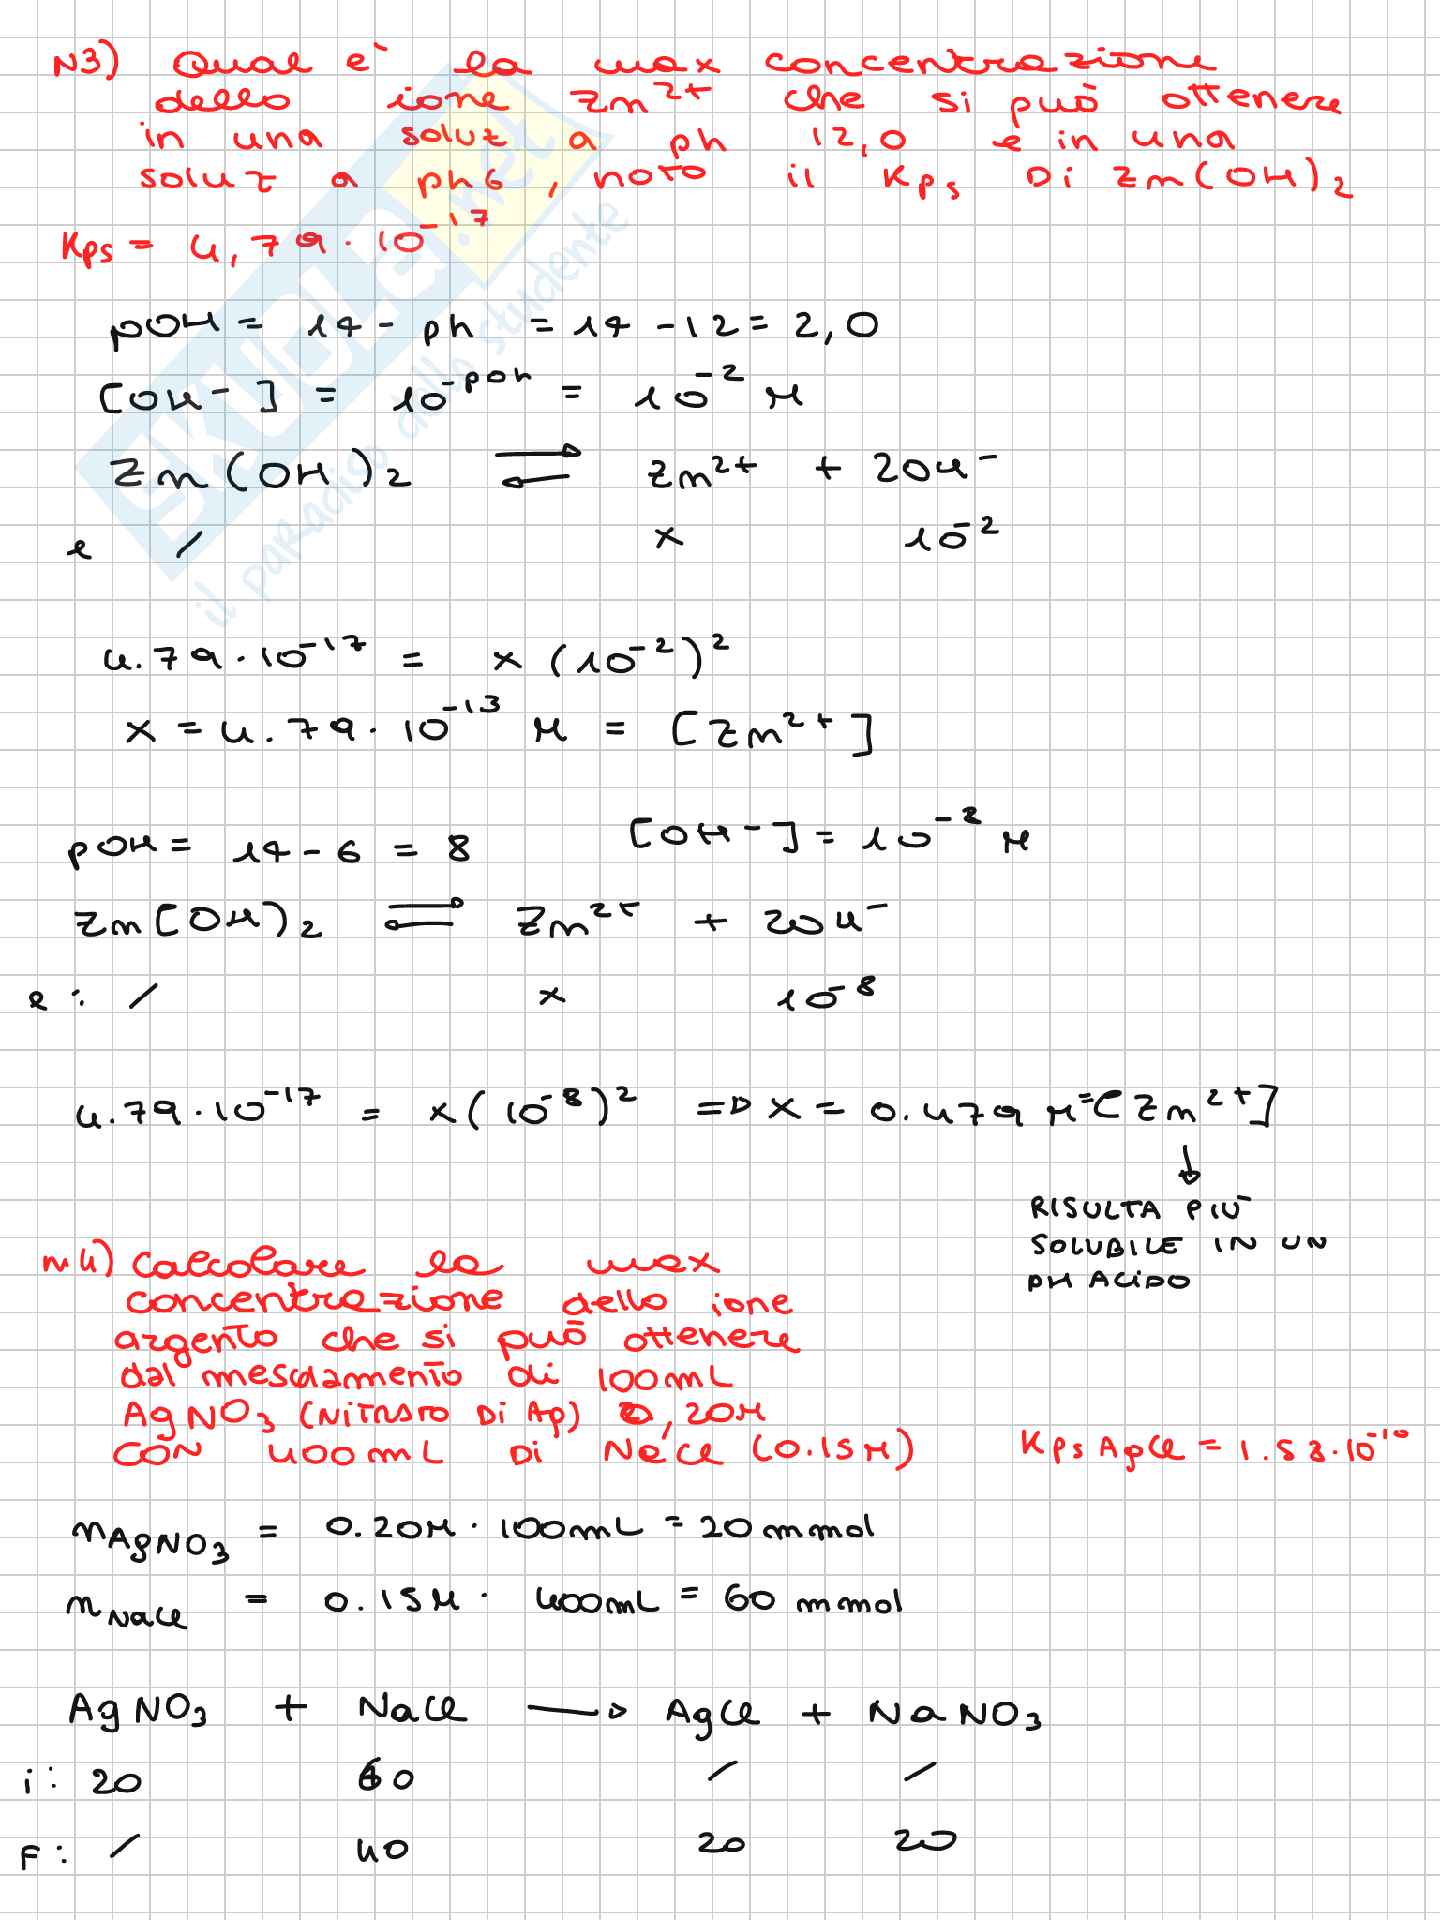 N3) Qual e' la max concentrazione
dello ione Zn²⁺ che si può ottenere
in una soluz a ph 12,0 e in una
soluz a ph6, noto il Kps Di Zn(OH)₂
Kps = 4,79·10⁻¹⁷
pOH = 14 - ph = 14 - 12 = 2,0
[OH⁻] = 10⁻ᵖᵒʰ = 10⁻² M
Zn(OH)₂ ⇌ Zn²⁺ + 2OH⁻
e / x 10⁻²
4.79·10⁻¹⁷ = x (10⁻²)²
x = 4.79·10⁻¹³ M = [Zn²⁺]
pOH = 14 - 6 = 8 [OH⁻] = 10⁻⁸ M
Zn(OH)₂ ⇌ Zn²⁺ + 2OH⁻
e : / x 10⁻⁸
4.79·10⁻¹⁷ = x(10⁻⁸)² => x = 0.479 M = [Zn²⁺]
↓
RISULTA PIÙ
SOLUBILE IN UN
PH ACIDO
n4) Calcolare la max
concentrazione dello ione
argento che si può ottenere
dal mescolamento di 100mL
AgNO₃ (NITRATO DI Ag) 0,20M
CON 400mL DI NaCl (0.15M) Kps AgCl = 1.53·10⁻¹⁰
nAgNO₃ = 0.20M · 100mL = 20 mmol
nNaCl = 0.15M · 400mL = 60 mmol
AgNO₃ + NaCl → AgCl + NaNO₃
i: 20 60 / /
F: / 40 20 20
SKUOLA.net
il paradiso dello studente